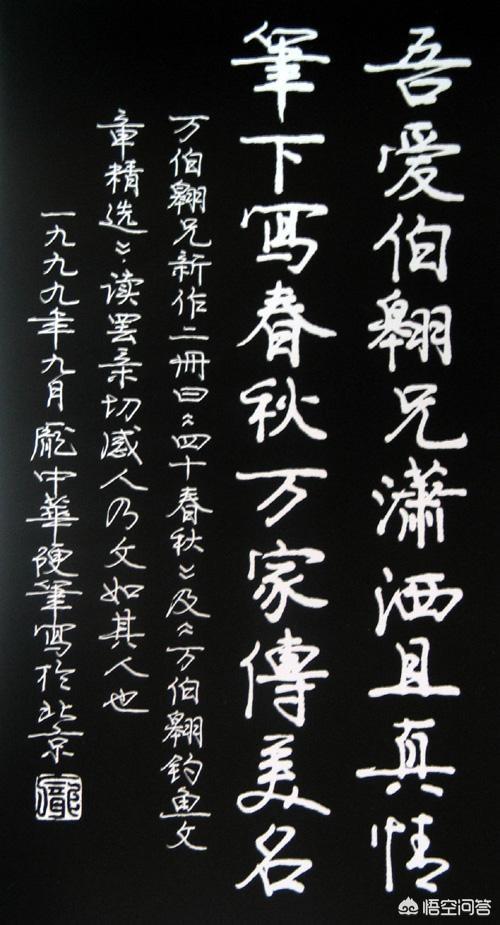 吾爱伯翱兄瀟洒且真情
筆下写春秋万家傳美名
万伯翱兄新作二冊曰《四十春秋》及《万伯翱钓鱼文
章精选》.读罢亲切感人乃文如其人也
一九九九年九月龐中華硬筆寫於北京
龐
悟空问答